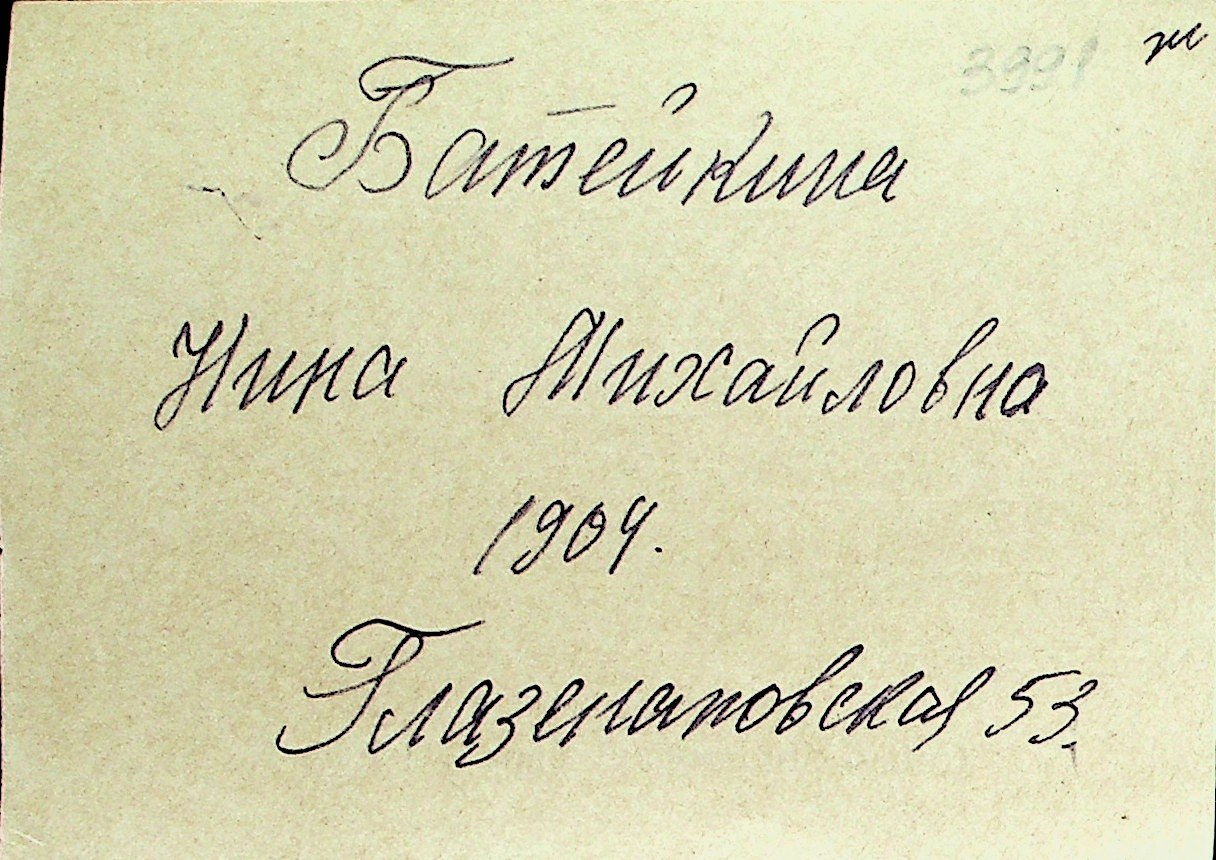 3991 ж
Батейкина
Нина Михайловна
1904.
Глазенаповская 53.